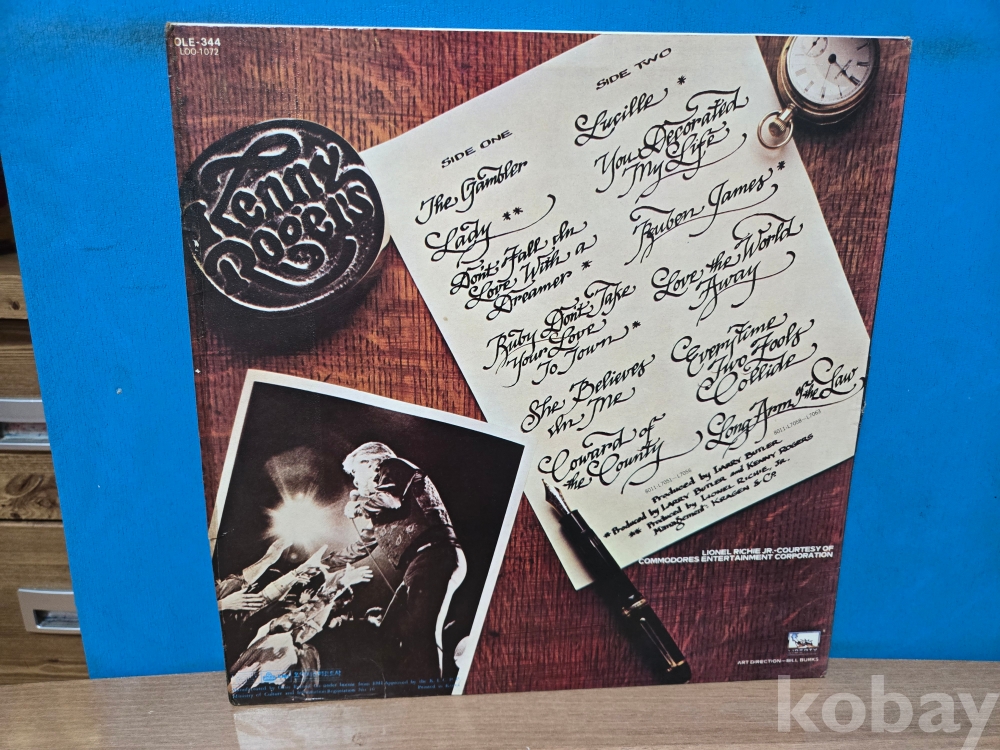 OLE-344
LOO-1072
Kenny
Rogers
SIDE ONE
The Gambler
Lady **
Don't Fall In
Love With a
Dreamer *
Ruby Don't Take
Your Love
To Town *
She Believes
In Me
Coward of
the County
SIDE TWO
Lucille *
You Decorated
My Life
Ruben James *
Love the World
Away
Everytime
Two Fools
Collide
Long Arm of the Law
Produced by LARRY BUTLER
*Produced by LARRY BUTLER and KENNY ROGERS
** Produced by LIONEL RICHIE, JR.
Management: KRAGEN & CO.
LIONEL RICHIE JR.-COURTESY OF
COMMODORES ENTERTAINMENT CORPORATION
LIBERTY
ART DIRECTION—BILL BURKS
kobay